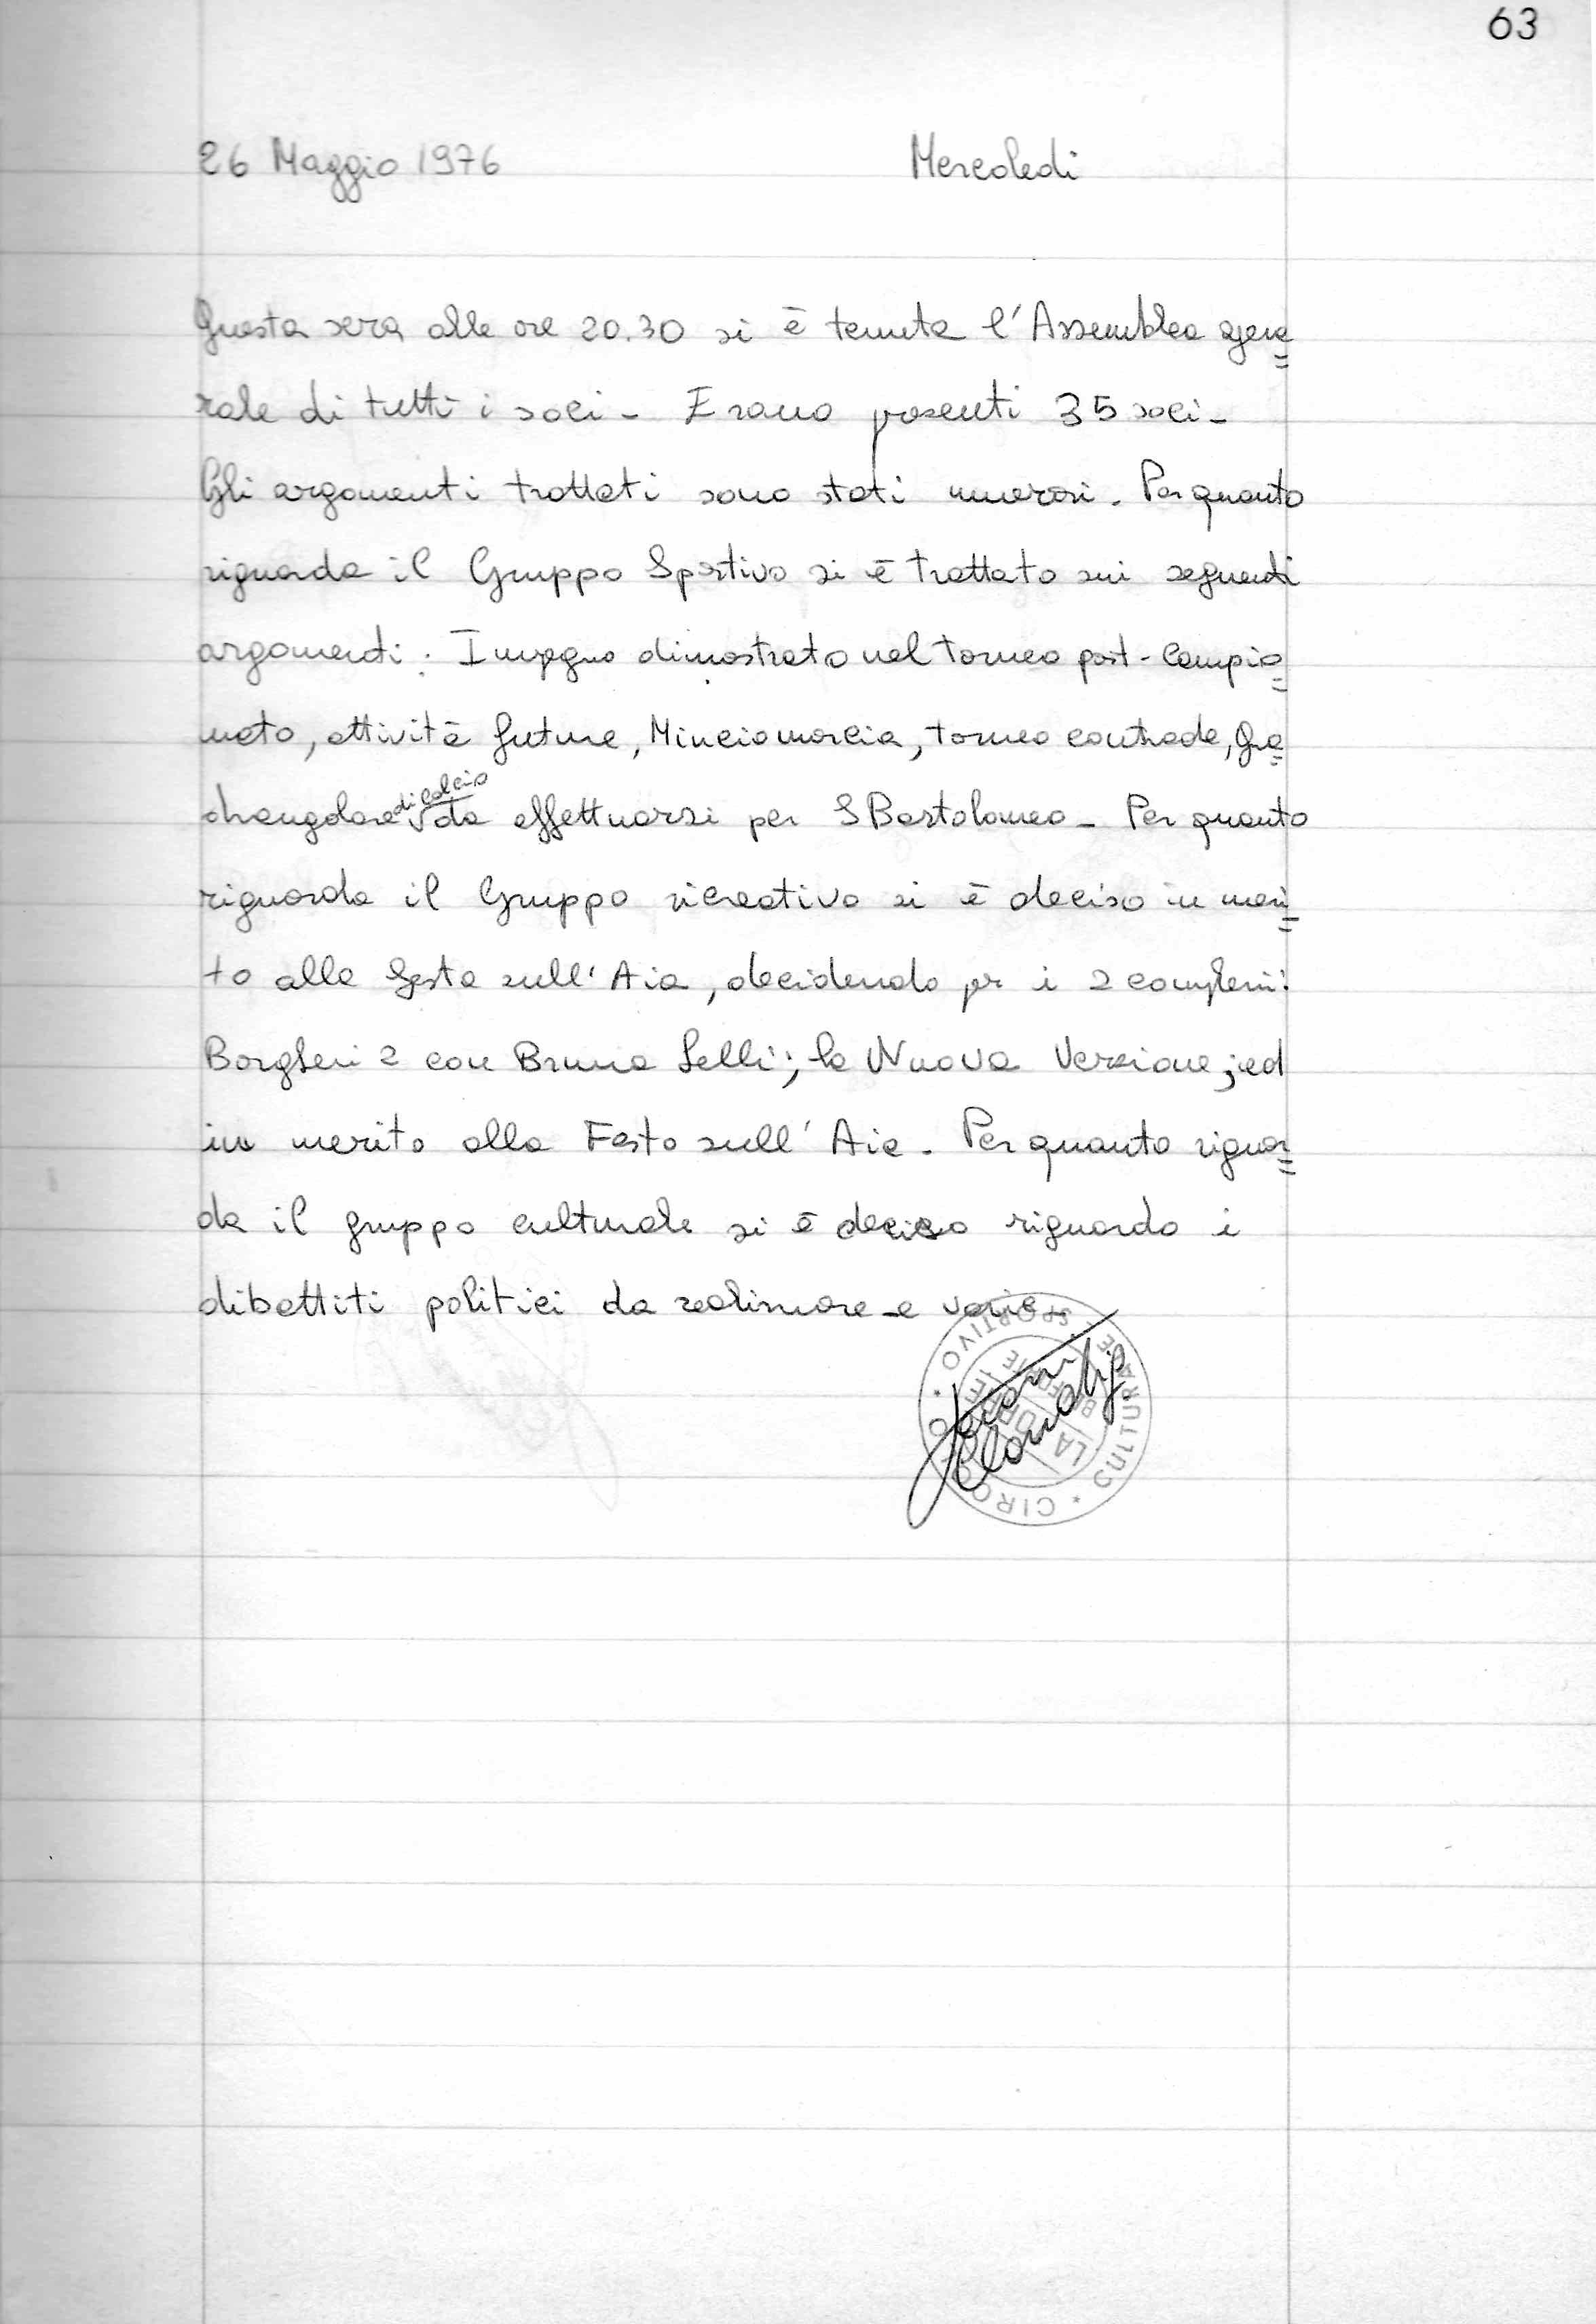 63
26 Maggio 1976 Mercoledi
Questa sera alle ore 20.30 si è tenuta l'Assemblea gene=
rale di tutti i soci - Erano presenti 35 soci -
Gli argomenti trattati sono stati numerosi. Per quanto
riguarda il Gruppo Sportivo si è trattato sui seguenti
argomenti: Impegno dimostrato nel torneo post-campio=
nato, attività future, Minciomarcia, torneo contrade, Qua=
drangolare di calcio da effettuarsi per S Bartolomeo - Per quanto
riguarda il Gruppo ricreativo si è deciso in meri=
to alla festa sull'Aia, decidendo per i 2 complessi:
Borghesi 2 con Bruna Lelli; la Nuova Versione; ed
in merito alla Festa sull'Aia. Per quanto riguar=
da il gruppo culturale si è deciso riguardo i
dibattiti politici da realizzare - e varie -
CIRCOLO * CULTURALE * SPORTIVO *
LA